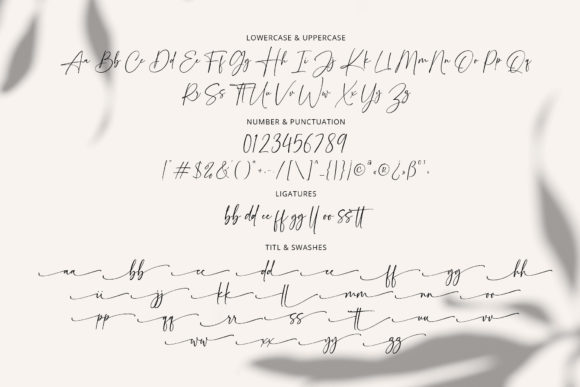 LOWERCASE & UPPERCASE
Aa Bb Cc Dd Ee Ff Gg Hh Ii Jj Kk Ll Mm Nn Oo Pp Qq
Rr Ss Tt Uu Vv Ww Xx Yy Zz
NUMBER & PUNCTUATION
0123456789
!"#$%&'()*+,-./[\]^_{|}¦©ª«®¿»ß°¹·
LIGATURES
bb dd ee ff gg ll oo ss tt
TITL & SWASHES
aa bb cc dd ee ff gg hh
ii jj kk ll mm nn oo
pp qq rr ss tt uu vv
ww xx yy zz